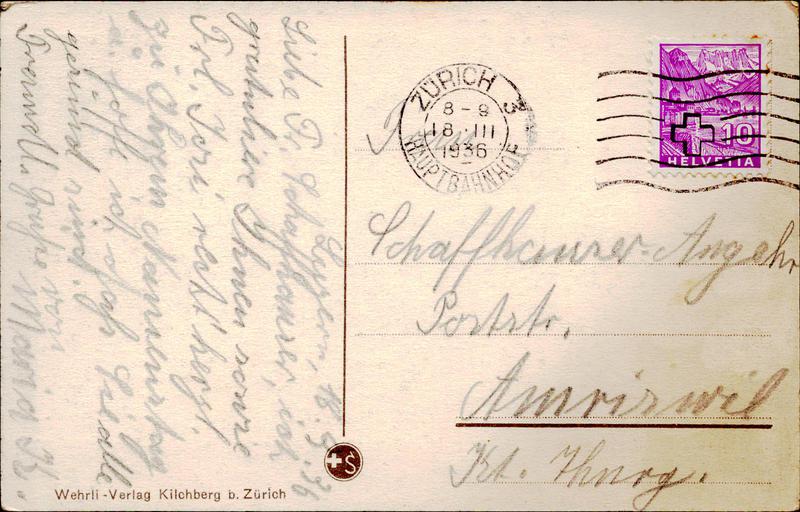 Luzern, 18. 3. 36
Liebe Fr. Schaffhauser, ich
gratuliere Ihnen sowie
Frl. Dori, recht herzl.
zu Ihrem Namenstag
& hoffe ich daß Sie alle
gesund sind.
Freundl. Grüße von
Maria K.
ZÜRICH 3
8-9
18.III
1936
HAUPTBAHNHOF
10
HELVETIA
Schaffhauser-Angehrn
Poststr.
Amriswil
Kt. Thurg.
Wehrli-Verlag Kilchberg b. Zürich